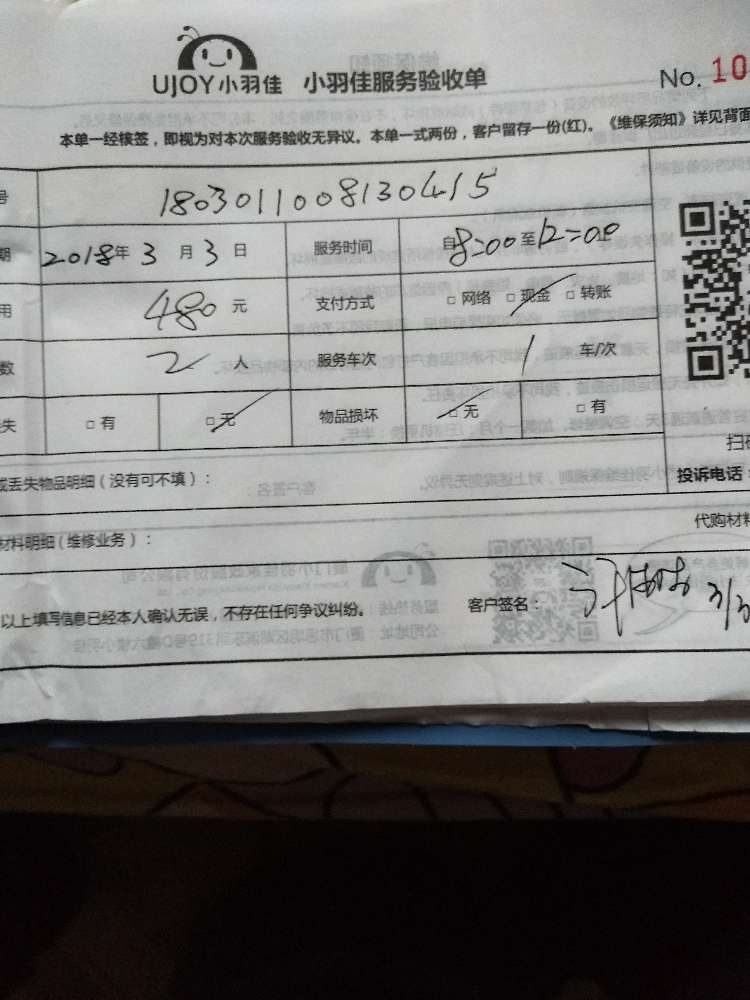 UJOY小羽佳 小羽佳服务验收单 No. 10
本单一经核签，即视为对本次服务验收无异议。本单一式两份，客户留存一份(红)。《维保须知》详见背面
号 1803011008130415
期 2018年 3 月 3 日 服务时间 自8:00至12:00
用 480 元 支付方式 □ 网络 □ 现金 □ 转账
数 2 人 服务车次 1 车/次
失 □ 有 □ 无 物品损坏 □ 无 □ 有
扫码
或丢失物品明细（没有可不填）： 投诉电话
代购材料
材料明细（维修业务）：
以上填写信息已经本人确认无误，不存在任何争议纠纷。 客户签名： 3/3